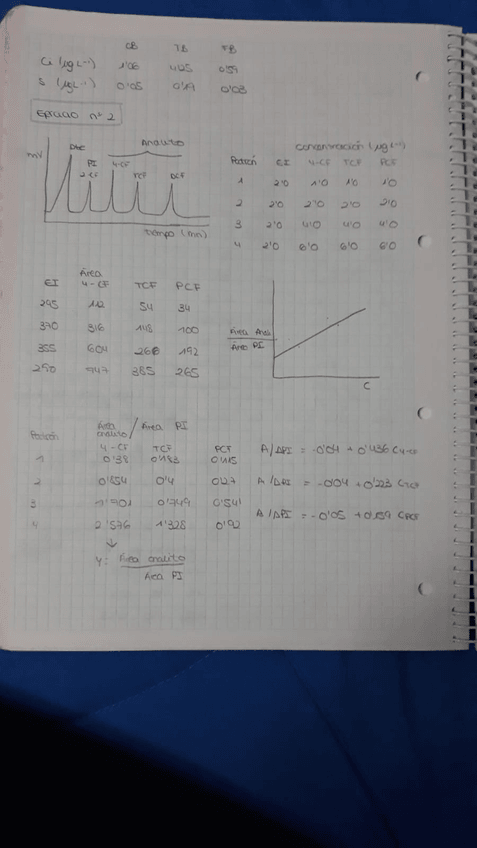 CB TB FB
Ci (µg L⁻¹) 1'06 4'25 0'59
S (µg L⁻¹) 0'05 0'19 0'08
Ejercicio nº 2
Analito
mV
PI 4-CF
2-CF TCF PCF
tiempo (min)
Concentración (µg L⁻¹)
Patrón EI 4-CF TCF PCF
1 2'0 1'0 1'0 1'0
2 2'0 2'0 2'0 2'0
3 2'0 4'0 4'0 4'0
4 2'0 6'0 6'0 6'0
Área
EI 4-CF TCF PCF
295 112 54 34
370 316 148 100
355 604 266 192
290 747 385 265
Área Ana
Área PI
C
Área analito / Área PI
Patrón 4-CF TCF PCF
1 0'38 0'183 0'115
2 0'854 0'4 0'27
3 1'701 0'749 0'541
4 2'576 1'328 0'92
A/API = -0'04 + 0'436 C4-CF
A/API = -0'04 + 0'223 CTCF
A/API = -0'05 + 0'159 CPCF
Y: Área analito
Área PI